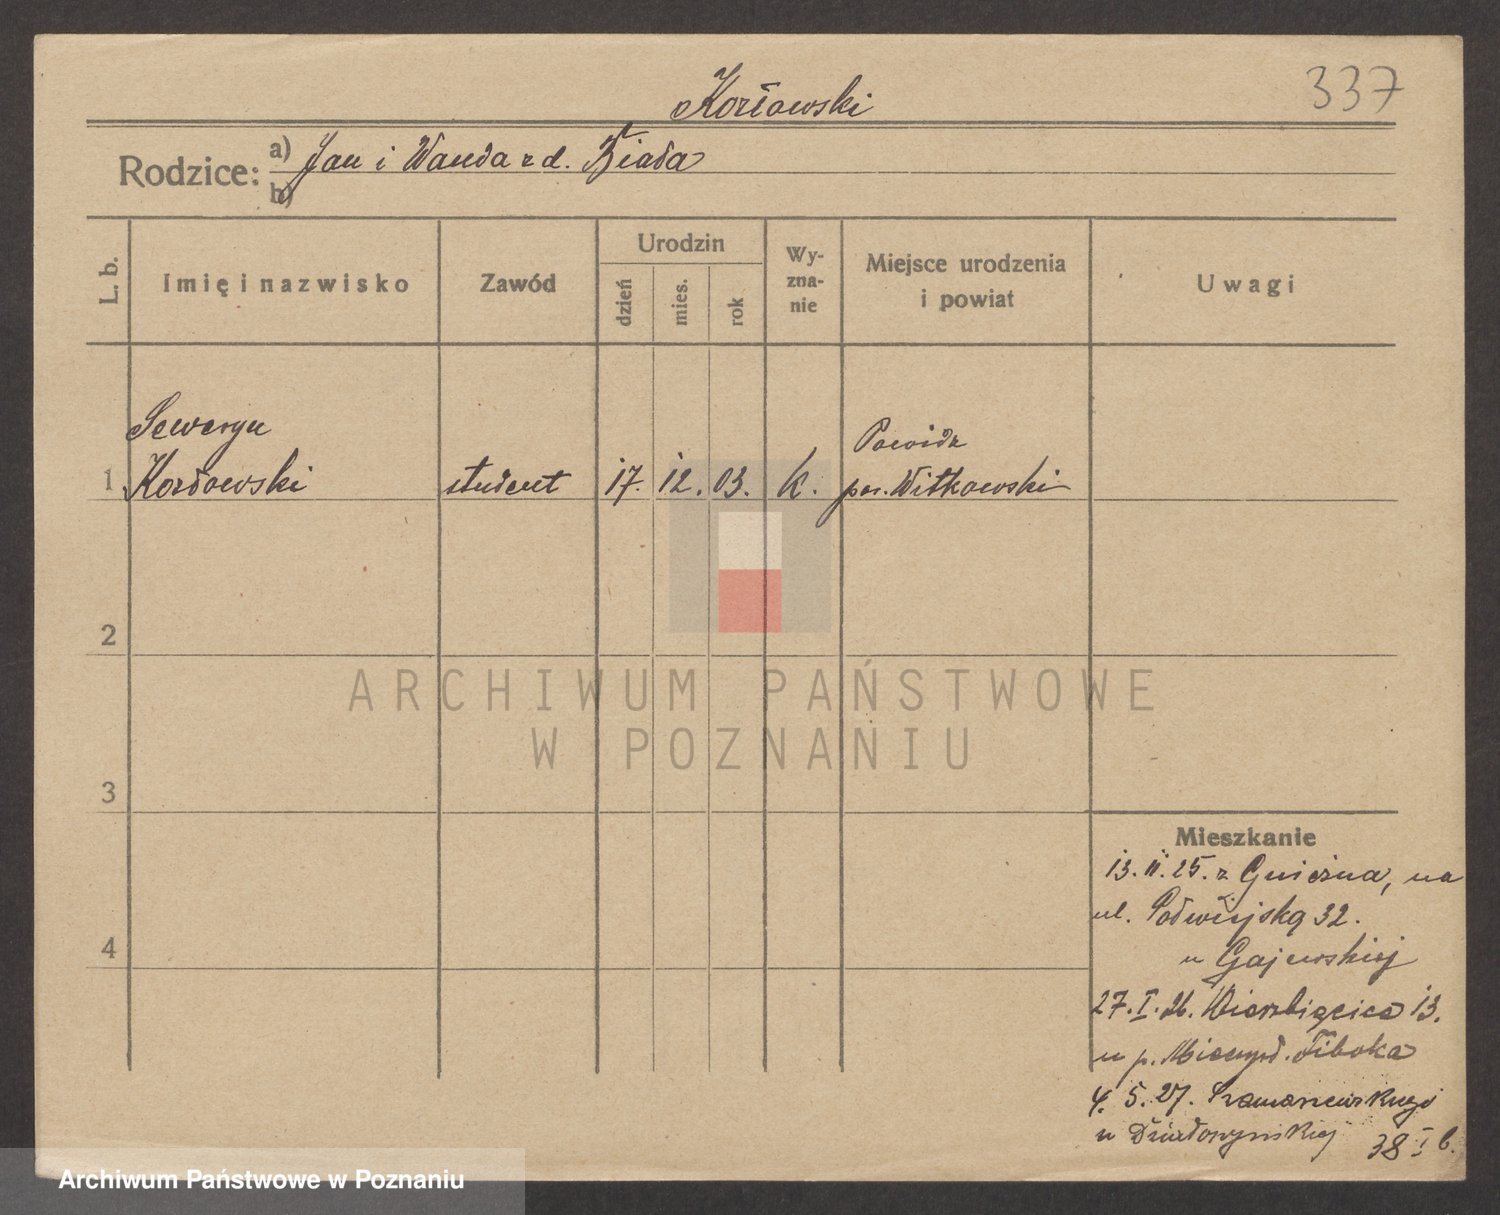 337
Kozłowski
Rodzice: a) Jan i Wanda z d. Biała
b)
L. b. Imię i nazwisko Zawód Urodzin dzień mies. rok Wyznanie Miejsce urodzenia i powiat Uwagi
Seweryn Powidz
1 Kozłowski student 17. 12. 03. k. pow. Witkowski
2
3
4
ARCHIWUM PAŃSTWOWE
W POZNANIU
Mieszkanie
13. II. 25. z Gniezna, na
ul. Podwiejską 32.
u Gajewskiej
27. I. 26. Wierzbięcice 13.
u p. Mieczysł.
4. 5. 27.
u Działoszyńskiej 38 I b.
Archiwum Państwowe w Poznaniu